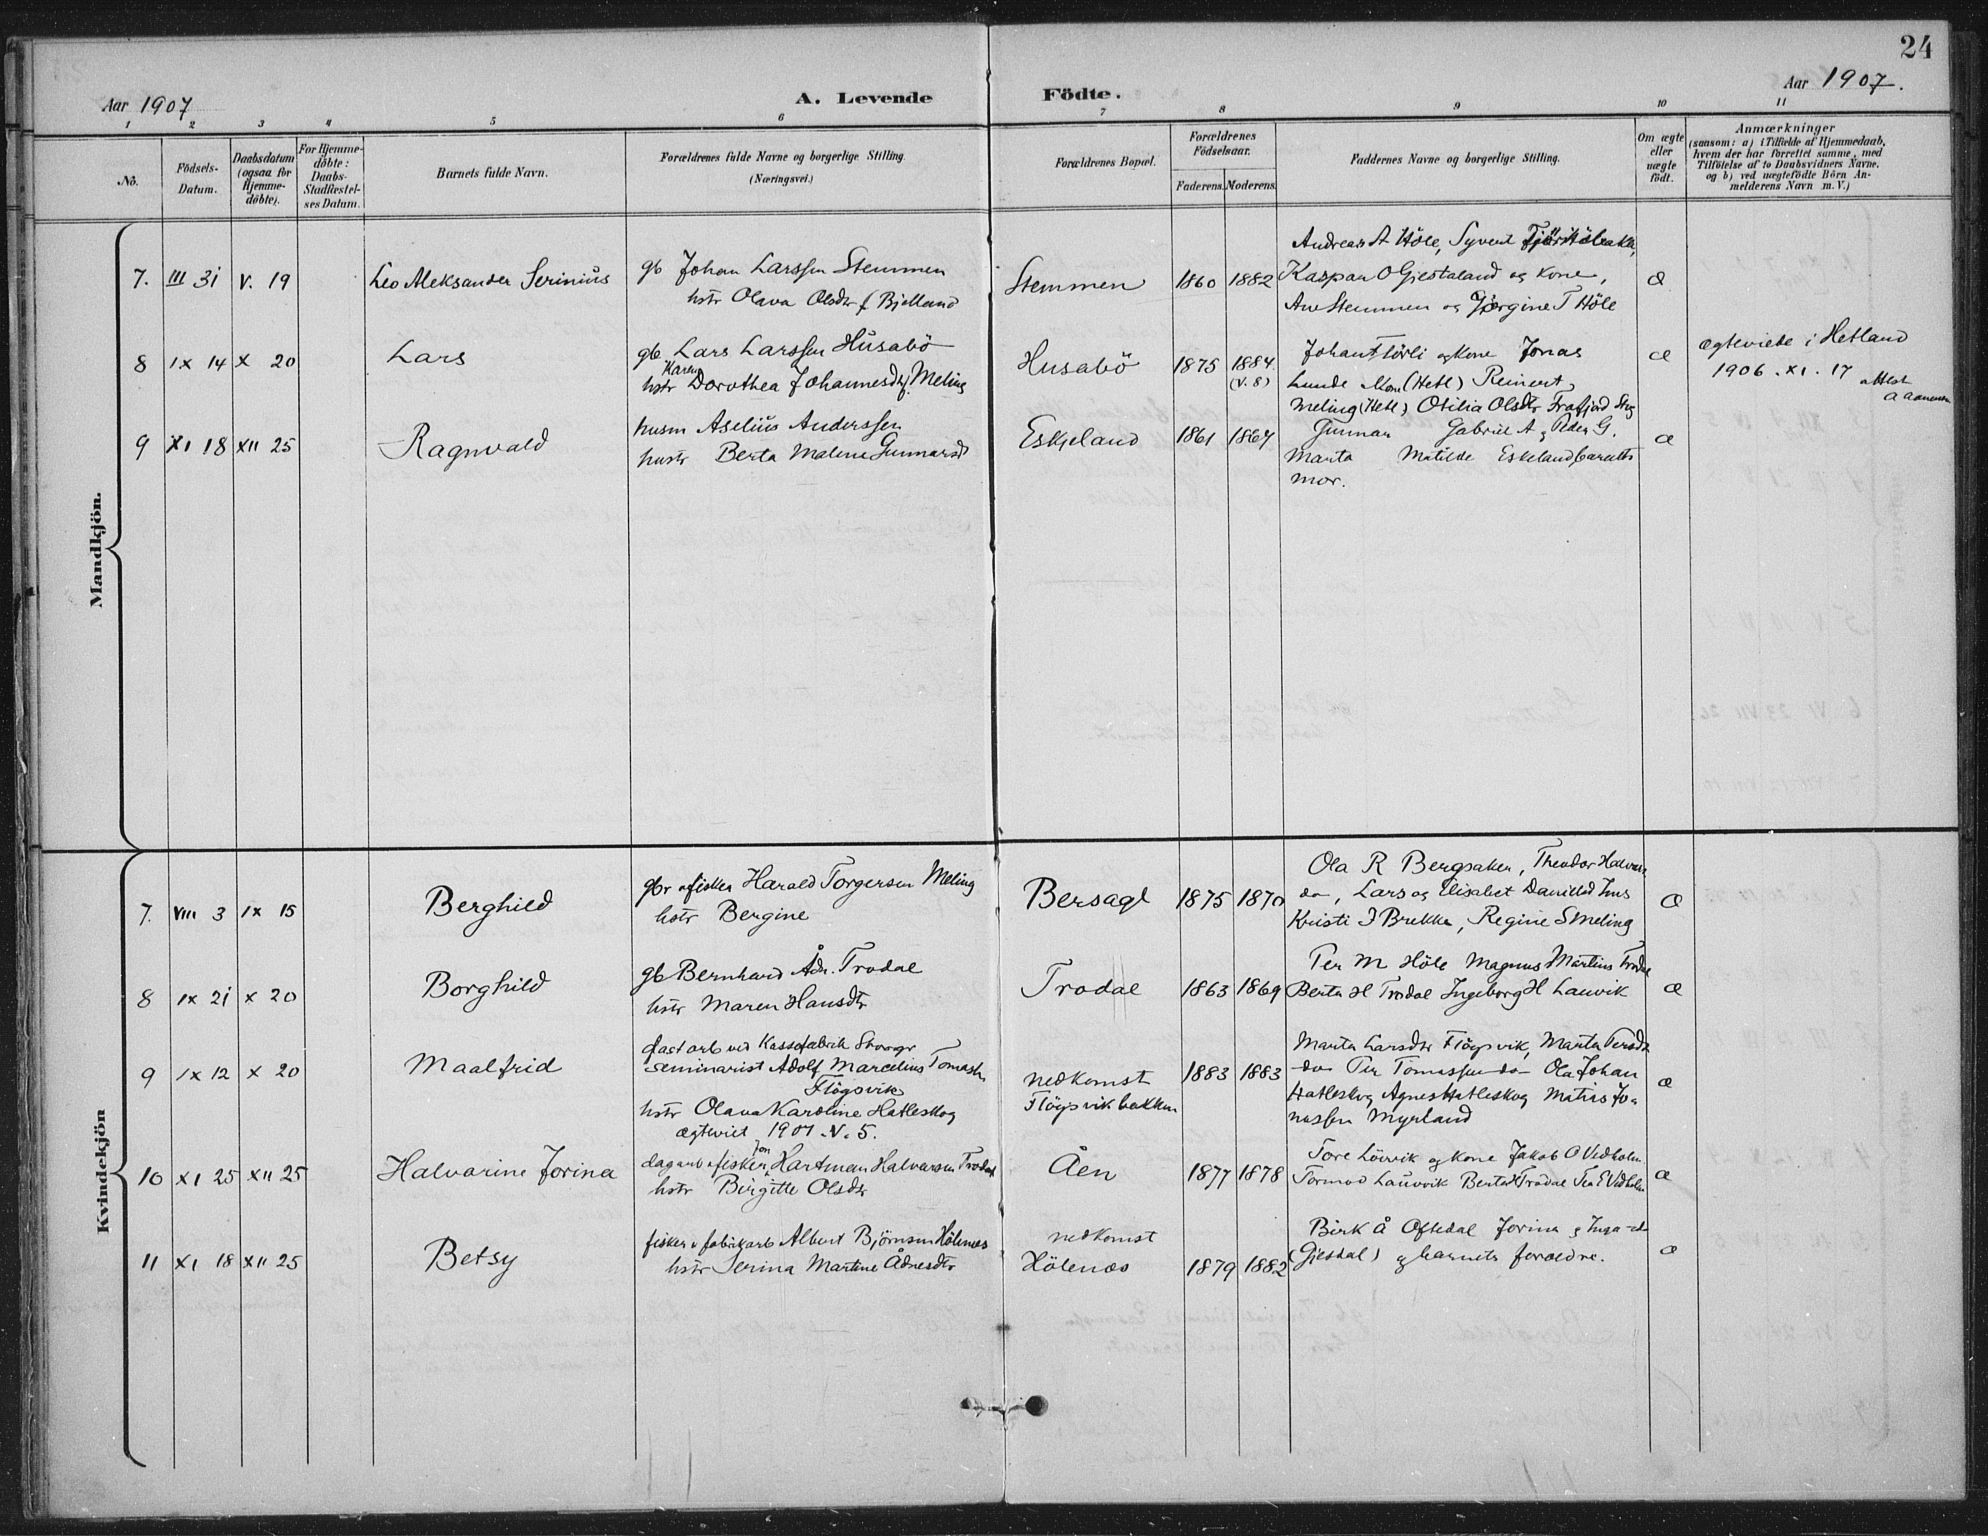 24
Aar 1907
A. Levende Födte.
Aar 1907.
1 2 3 4 5 6 7 8 9 10 11
No.
Födsels-
Datum.
Daabsdatum
(ogsaa for
Hjemme-
döbte).
For Hjemme-
döbte:
Daabs-
Stadfæstel-
ses Datum.
Barnets fulde Navn.
Forældrenes fulde Navne og borgerlige Stilling.
(Næringsvei.)
Forældrenes Bopæl.
Forældrenes
Födselsaar.
Faderens. Moderens.
Faddernes Navne og borgerlige Stilling.
Om ægte
eller
uægte
födt.
Anmærkninger
(saasom: a) i Tilfælde af Hjemmedaab,
hvem der har forrettet samme, med
Tilföielse af to Daabsvidners Navne.
og b) ved uægtefödte Börn An-
melderens Navn m. V.)
Mandkjön.
7. III 31 V. 19
Leo Aleksander Serinius
gb Johan Larssen Stemmen
hstr Olava Olsdtr f Bjelland
Stemmen
1860 1882
Andreas A Höle, Syvert
Kaspar O Gjestaland og kone,
Ane Stemmen og Gjørgine T Höle
æ
8 IX 14 X 20
Lars
gb Lars Larssen Husabö
Karen
hstr Dorothea Johannesdtr f. Meling
Husabö
1875 1884
(V. 8)
Johan Törli og kone Jonas
Lunde kone (Hetl) Reinert
Meling (Hetl) Otilia Olsdtr Frafjord Stvg
æ
ægteviede i Hetland
1906. XI. 17 attest
9 XI 18 XII 25
Ragnvald
husm Aselius Anderssen
hustr Berta Malene Gunnarsd
Eskjeland
1861 1867
Gunnar Gabriel A og Peder G.
Marta Matilde Eskeland barnets
mor.
æ
Kvindekjön
7. VIII 3 IX 15
Berghild
gbr o fisker Harald Torgersen Meling
hstr Bergine
Bersagl
1875 1870
Ola R Bergsaker, Theodor Halvor
do, Lars og Elisabet Danielsd Ims
Kristi I Brekke, Regine S Meling
æ
8 IX 21 X 20
Borghild
gb Bernhard Ådn. Trodal
hstr Maren Hansdtr
Trodal
1863 1869
Per M Höle Magnus Martins Trodal
Berta H Trodal Ingeborg H Lauvik
æ
9 IX 12 X 20
Maalfrid
fast arb ved Kassefabrik Stvangr
seminarist Adolf Marcelius Tomassen
Flögsvik
hstr Olava Karoline Hatleskog
ægteviet 1907. V. 5.
nedkomst
Flögsvikbakken
1883 1883
Marta Larsdtr Flögsvik, Marta Persdtr
do Per Tomassen do Ola Johan
Hatleskog Agnes Hatleskog Matias Jo-
nassen Myrland
æ
10 XI 25 XII 25
Halvarine Jorina
dagarb o fisker Jon Hartman Halvorsen Trodal
hstr Birgitte Olsdtr
Åen
1877 1878
Tore Löivik og kone Jakob O Vedholm
Tormod Lauvvik Berta Trodal Tea E Vedholm
æ
11 XI 18 XII 25
Betsy
fisker o fabrikarb Albert Björnsen Hölenes
hstr Serina Martine Ådnesdtr
nedkomst
Hölenæs
1879 1882
Birk Å Oftedal Jorina og Inga do
(Gjesdal) og barnets foreldre.
æ